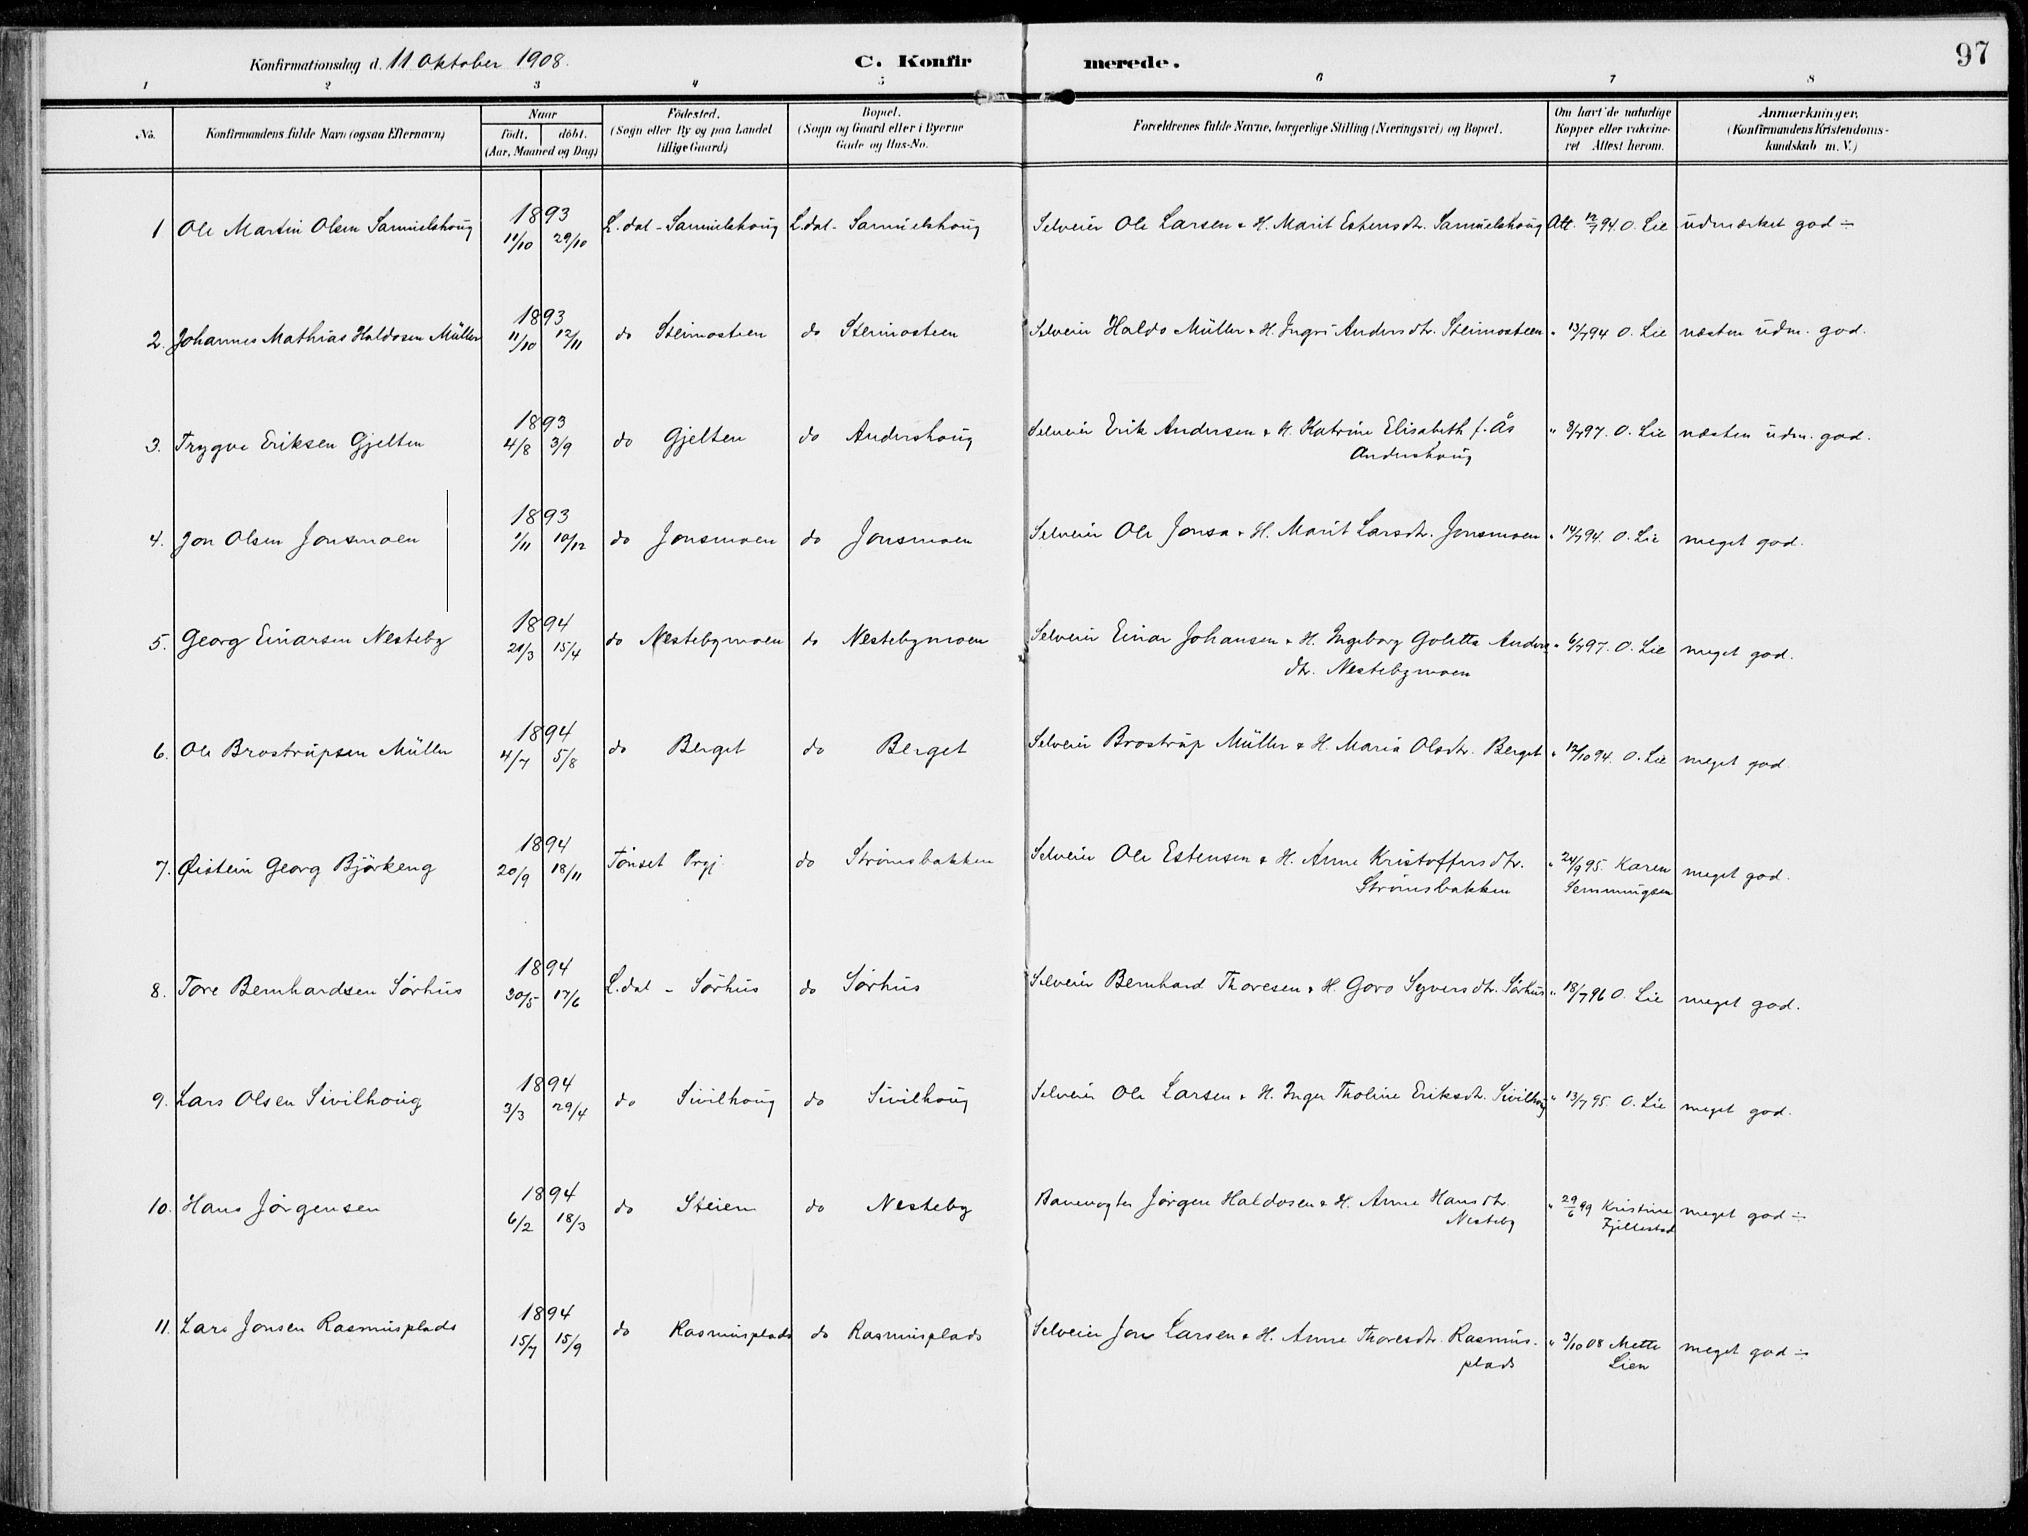 Konfirmationsdag d. 11 Oktober 1908. C. Konfirmerede. 97
1 2 3 4 5 6 7 8
No. Konfirmandens fulde Navn (ogsaa Efternavn) Naar født, døbt. (Aar, Maaned og Dag) Fødested. (Sogn eller By og paa Landet tillige Gaard) Bopæl. (Sogn og Gaard eller i Byerne Gade og Hus-No. Forældrenes fulde Navne, borgerlige Stilling (Næringsvei) og Bopæl. Om havt de naturlige Kopper eller vakcineret Attest herom. Anmærkninger. (Konfirmandens Kristendomskundskab m. V.)
1 Ole Martin Olsen Samuelshoug 1893 11/10 29/10 L.dal - Samuelshoug L.dal - Samuelshoug Selveier Ole Larsen & H. Marit Estensdtr. Samuelshoug Att. 12/7 94 O. Lie udmærket god ÷
2. Johannes Mathias Haldosen Müller 1893 11/10 12/11 do Steimosteen do Steimosteen Selveier Haldo Müller & H. Ingri Andersdtr. Steimosteen " 13/7 94 O. Lie næsten udm. god.
3. Trygve Eriksen Gjelten 1893 4/8 3/9 do Gjelten do Andershoug Selveier Erik Andersen & H. Katrine Elisabeth f. Ås
Andershoug " 3/7 97. O. Lie næsten udm. god.
4. Jon Olsen Jonsmoen 1893 1/11 10/12 do Jonsmoen do Jonsmoen Selveier Ole Jonsa & H. Marit Larsdtr. Jonsmoen " 14/7 94. O. Lie meget god.
5. Georg Einarsen Nesteby 1894 21/3 15/4 do Nestebymoen do Nestebymoen Selveier Einar Johansen & H. Ingeborg Goletta Anders
dtr. Nestebymoen " 6/7 97. O. Lie meget god.
6. Ole Brostrupsen Müller 1894 4/7 5/8 do Berget do Berget Selveier Brostrup Müller & H. Maria Olsdtr. Berget " 12/10 94. O. Lie meget god.
7. Øistein Georg Bjørkeng 1894 20/9 18/11 Tønset Prgj. do Strømsbakken Selveier Ole Estensen & H. Anne Kristoffersdtr.
Strømsbakken " 24/9 95. Karen
Semmingsen meget god.
8. Tore Bernhardsen Sørhus 1894 20/5 17/6 L.dal - Sørhus do Sørhus Selveier Bernhard Thoresen & H. Goro Syversdtr. Sørhus " 18/7 96 O. Lie meget god.
9. Lars Olsen Sivilhoug 1894 3/3 29/4 do Sivilhoug do Sivilhoug Selveier Ole Larsen & H. Inger Tholine Eriksdtr. Sivilhoug " 13/7 95. O. Lie meget god.
10. Hans Jørgensen 1894 6/2 18/3 do Steien do Nesteby Banevogter Jørgen Haldosen & H. Anne Hansdtr.
Nesteby " 29/6 99 Kristine
Fjellestad meget god ÷
11. Lars Jonsen Rasmusplads 1894 15/7 15/9 do Rasmusplads do Rasmusplads Selveier Jon Larsen & H. Anne Thoresdtr. Rasmus-
plads " 3/10 08 Mette
Lien meget god ÷